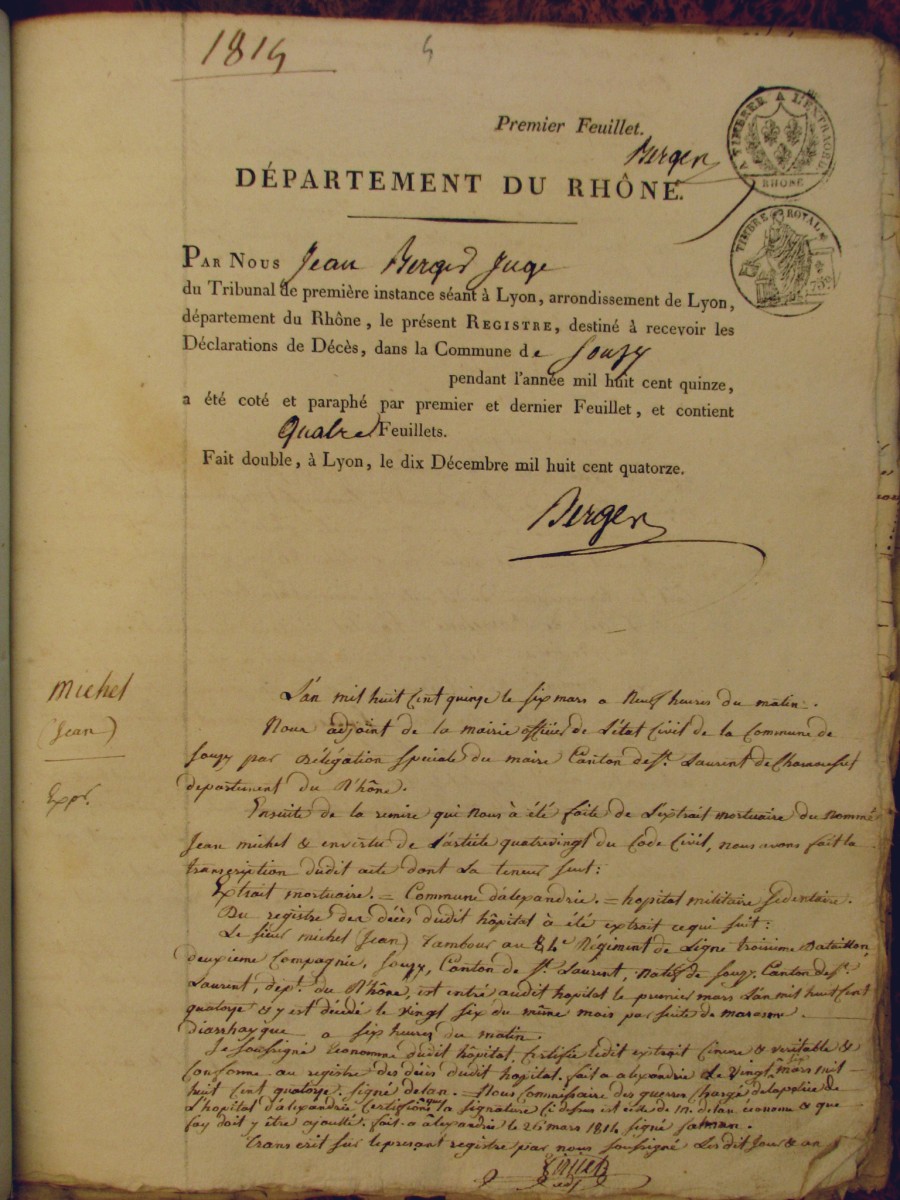 1815
Premier Feuillet.
Berger
A TIMBRER A L'EXTRAORD.
RHÔNE
DÉPARTEMENT DU RHÔNE.
TIMBRE ROYAL
75c
PAR NOUS Jean Berger Juge
du Tribunal de première instance séant à Lyon, arrondissement de Lyon,
département du Rhône, le présent REGISTRE, destiné à recevoir les
Déclarations de Décès, dans la Commune de Souzy
pendant l'année mil huit cent quinze,
a été coté et paraphé par premier et dernier Feuillet, et contient
Quatre Feuillets.
Fait double, à Lyon, le dix Décembre mil huit cent quatorze.
Berger
Michel
(Jean)
L'an mil huit Cent quinze le six mars a Neuf heures du matin.
Nous adjoint de la mairie officier de L'état Civil de la Commune de
Souzy par délégation spéciale du maire Canton de St. Laurent de Chamousset
departement du Rhône.
Ensuite de la remise qui Nous à été faite de L'extrait mortuaire du nommé
Jean michel & en vertu de L'article quatrevingt du Code Civil, nous avons fait la
transcription dudit acte dont La teneur suit:
Extrait mortuaire. = Commune d'alexandrie. = hopital militaire Sedentaire.
Du registre des décès dudit hôpital à été extrait ce qui suit:
Le sieur michel (Jean) Tambour au Régiment de Ligne troisieme Bataillon,
deuxieme Compagnie, Souzy, Canton de St. Laurent, natif de Souzy Canton de St.
Laurent, dept. du Rhône, est entré audit hopital le premier mars L'an mil huit Cent
quatorze & y est décédé le vingt six du même mois par suite de marasme
diarrhayque a six heures du matin.
Je soussigné Econome dudit hôpital, Certifie ledit extrait sincere & veritable &
Conforme au registre des décès dudit hopital. fait a alexandrie Le vingt mars mil
huit Cent quatorze. signé delan. = Nous Commissaire des guerres Chargé de la police de
L'hopital d'alexandrie Certifions que la signature Ci dessus est celle de M. delan econome & que
foy doit y être ajoutté. fait a alexandrie le 26 mars 1814 signé
transcrit sur le present registre par nous soussigné Les dit Jour & an
adj.